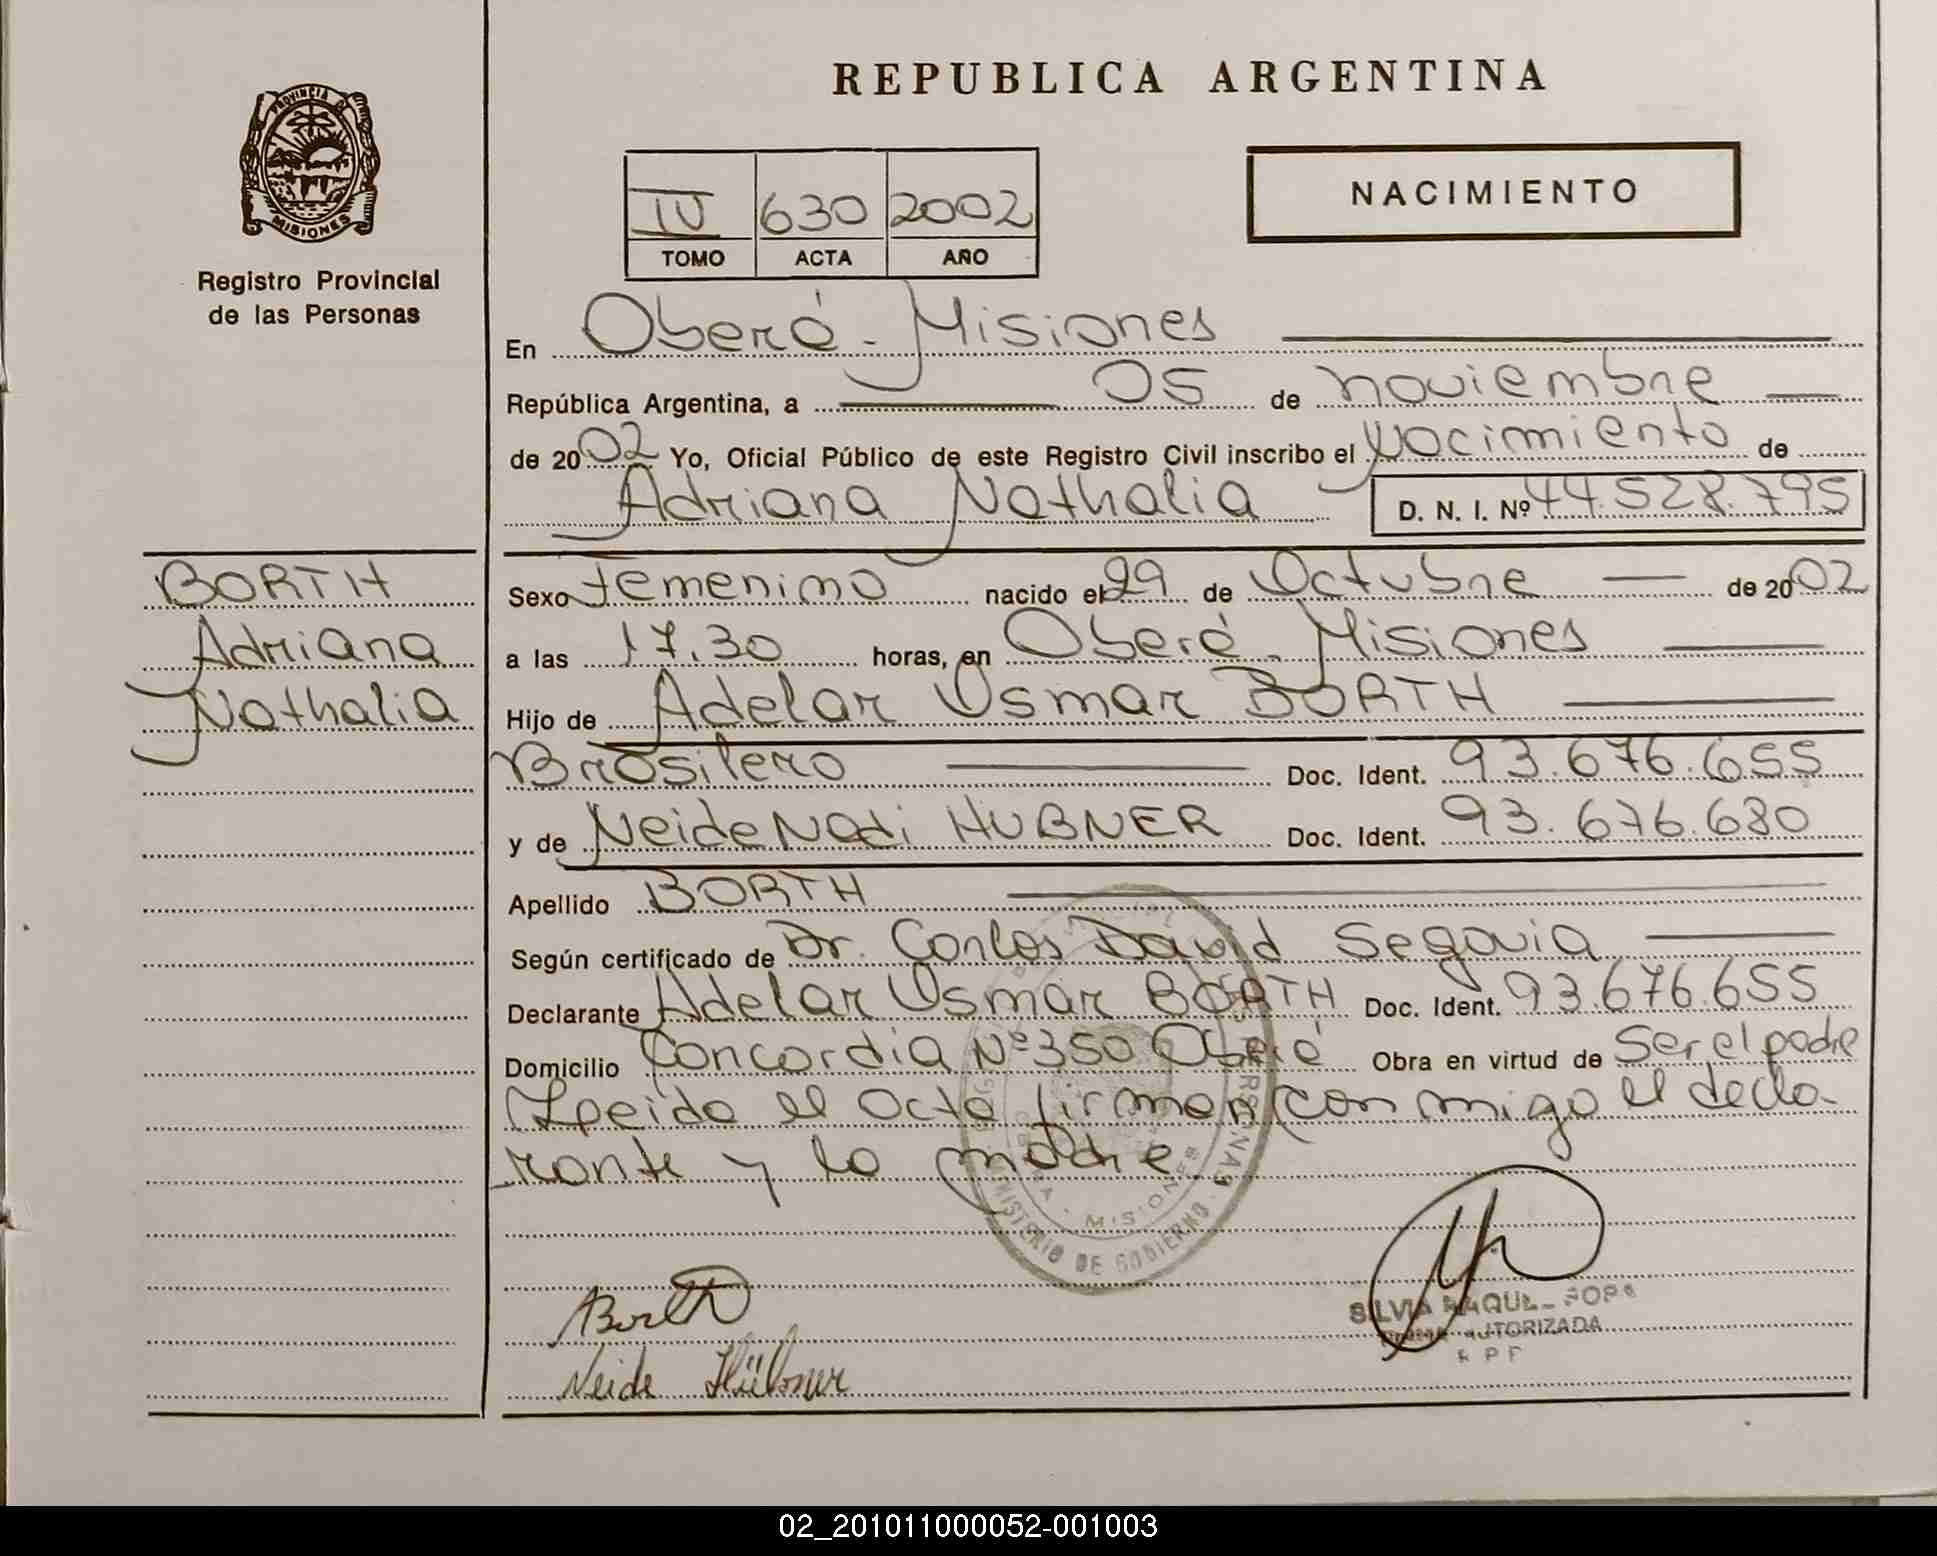 REPUBLICA ARGENTINA
PROVINCIA DE
MISIONES
Registro Provincial
de las Personas
NACIMIENTO
IV 630 2002
TOMO ACTA AÑO
En Oberá - Misiones
República Argentina, a 05 de noviembre
de 2002 Yo, Oficial Público de este Registro Civil inscribo el Nacimiento de
Adriana Nathalia D. N. I. Nº 44.528.795
BORTH
Adriana
Nathalia
Sexo femenino nacido el 29 de Octubre de 2002
a las 17.30 horas, en Oberá - Misiones
Hijo de Adelar Osmar BORTH
Brasilero Doc. Ident. 93.676.655
y de Neide Nadi HUBNER Doc. Ident. 93.676.680
Apellido BORTH
Según certificado de Dr. Carlos David Segovia
Declarante Adelar Osmar BORTH Doc. Ident. 93.676.655
Domicilio Concordia Nº 350 Oberá Obra en virtud de ser el padre
Leida el acta firman con migo el decla-
rante y la madre
MISIONES
MINISTERIO DE GOBIERNO
Borth
Neide Hübner
SILVIA RAQUEL
AUTORIZADA
02_201011000052-001003